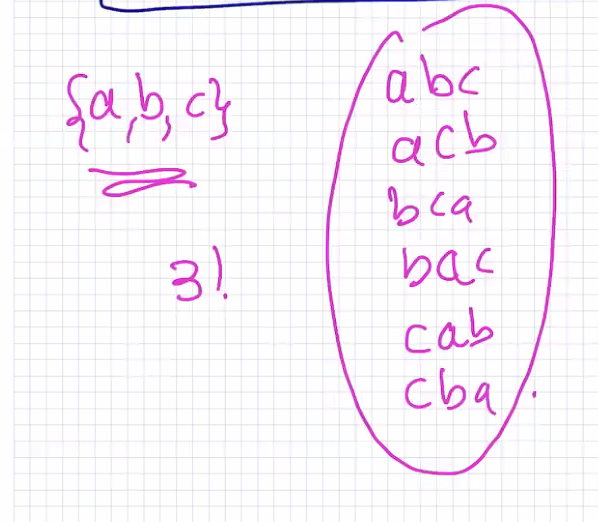 {a,b,c}
3!
abc
acb
bca
bac
cab
cba.